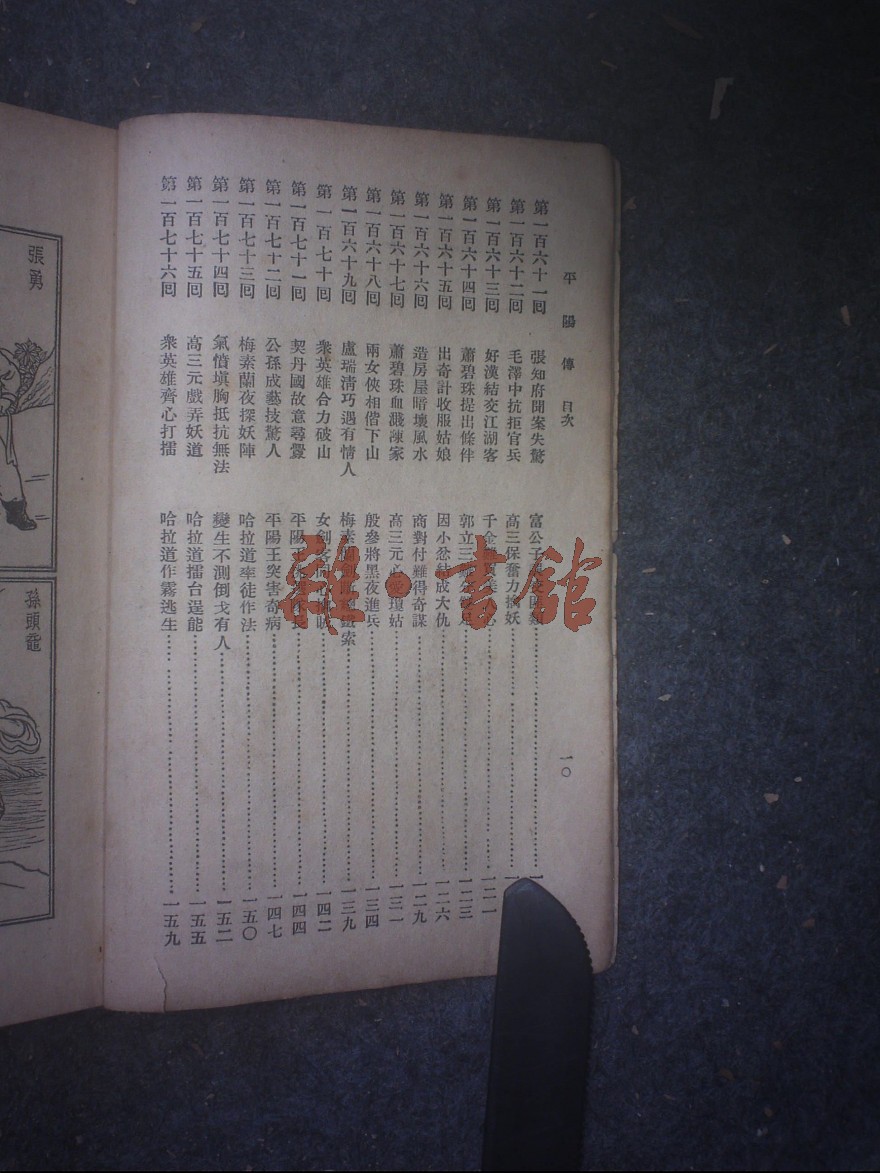 平陽傳 目次 一〇
第一百六十一囘 張知府聞案失驚 富公子
第一百六十二囘 毛澤中抗拒官兵 高三保奮力擒妖
第一百六十三囘 好漢結交江湖客 千金 心 一二一
第一百六十四囘 蕭碧珠提出條件 郭立三 足 一二三
第一百六十五囘 出奇計收服姑娘 因小忿結成大仇 一二六
第一百六十六囘 造房屋暗壞風水 商對付難得奇謀 一二九
第一百六十七囘 蕭碧珠血濺陳家 高三元心愛瓊姑 一三一
第一百六十八囘 兩女俠相偕下山 殷參將黑夜進兵 一三四
第一百六十九囘 盧瑞清巧遇有情人 梅素蘭劍斷 索 一三九
第一百七十囘 衆英雄合力破山 女劍客同心 一四二
第一百七十一囘 契丹國故意尋釁 平陽王 長 一四四
第一百七十二囘 公孫成藝技驚人 平陽王突害奇病 一四七
第一百七十三囘 梅素蘭夜探妖陣 哈拉道率徒作法 一五〇
第一百七十四囘 氣憤塡胸抵抗無法 變生不測倒戈有人 一五二
第一百七十五囘 高三元戲弄妖道 哈拉道擂台逞能 一五五
第一百七十六囘 衆英雄齊心打擂 哈拉道作霧逃生 一五九
張勇
孫頭黿
雜·書館